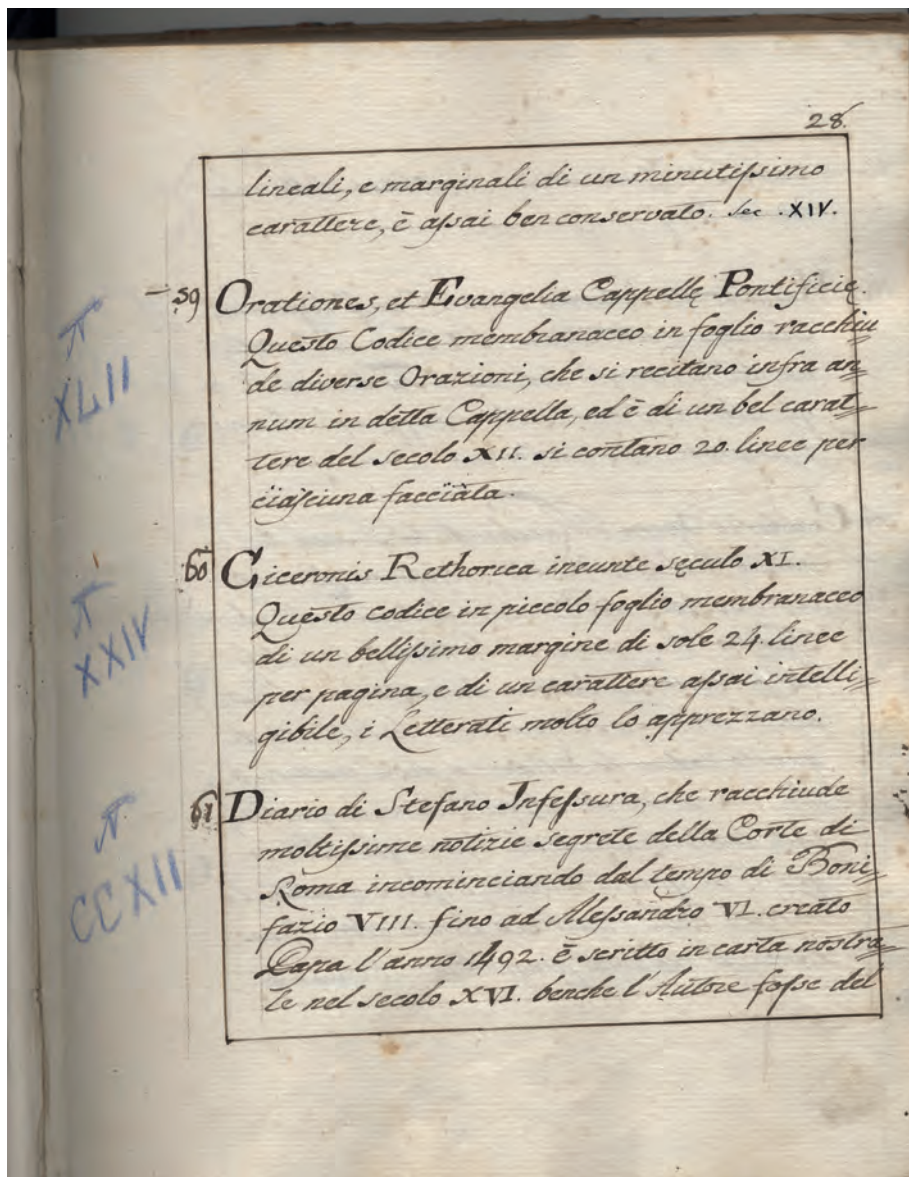 28.
lineali, e marginali di un minutissimo
carattere, è assai ben conservato. Sec. XIV.
59 Orationes, et Evangelia Cappellę Pontificię.
N
XLII
Questo Codice membranaceo in foglio racchiu
de diverse Orazioni, che si recitano infra an=
num in detta Cappella, ed è di un bel carat=
tere del secolo XII. si contano 20. linee per
ciascuna facciata.
60 Ciceronis Rethorica ineunte sęculo XI.
N
XXIV
Questo codice in piccolo foglio membranaceo
di un bellissimo margine di sole 24. linee
per pagina, e di un carattere assai intelli=
gibile, i Letterati molto lo apprezzano.
61 Diario di Stefano Infessura, che racchiude
N.
CCXII
moltissime notizie segrete della Corte di
Roma incominciando dal tempo di Boni=
fazio VIII. fino ad Alessandro VI. creato
Papa l'anno 1492. è scritto in carta nostra=
le nel secolo XVI. benche l'Autore fosse del